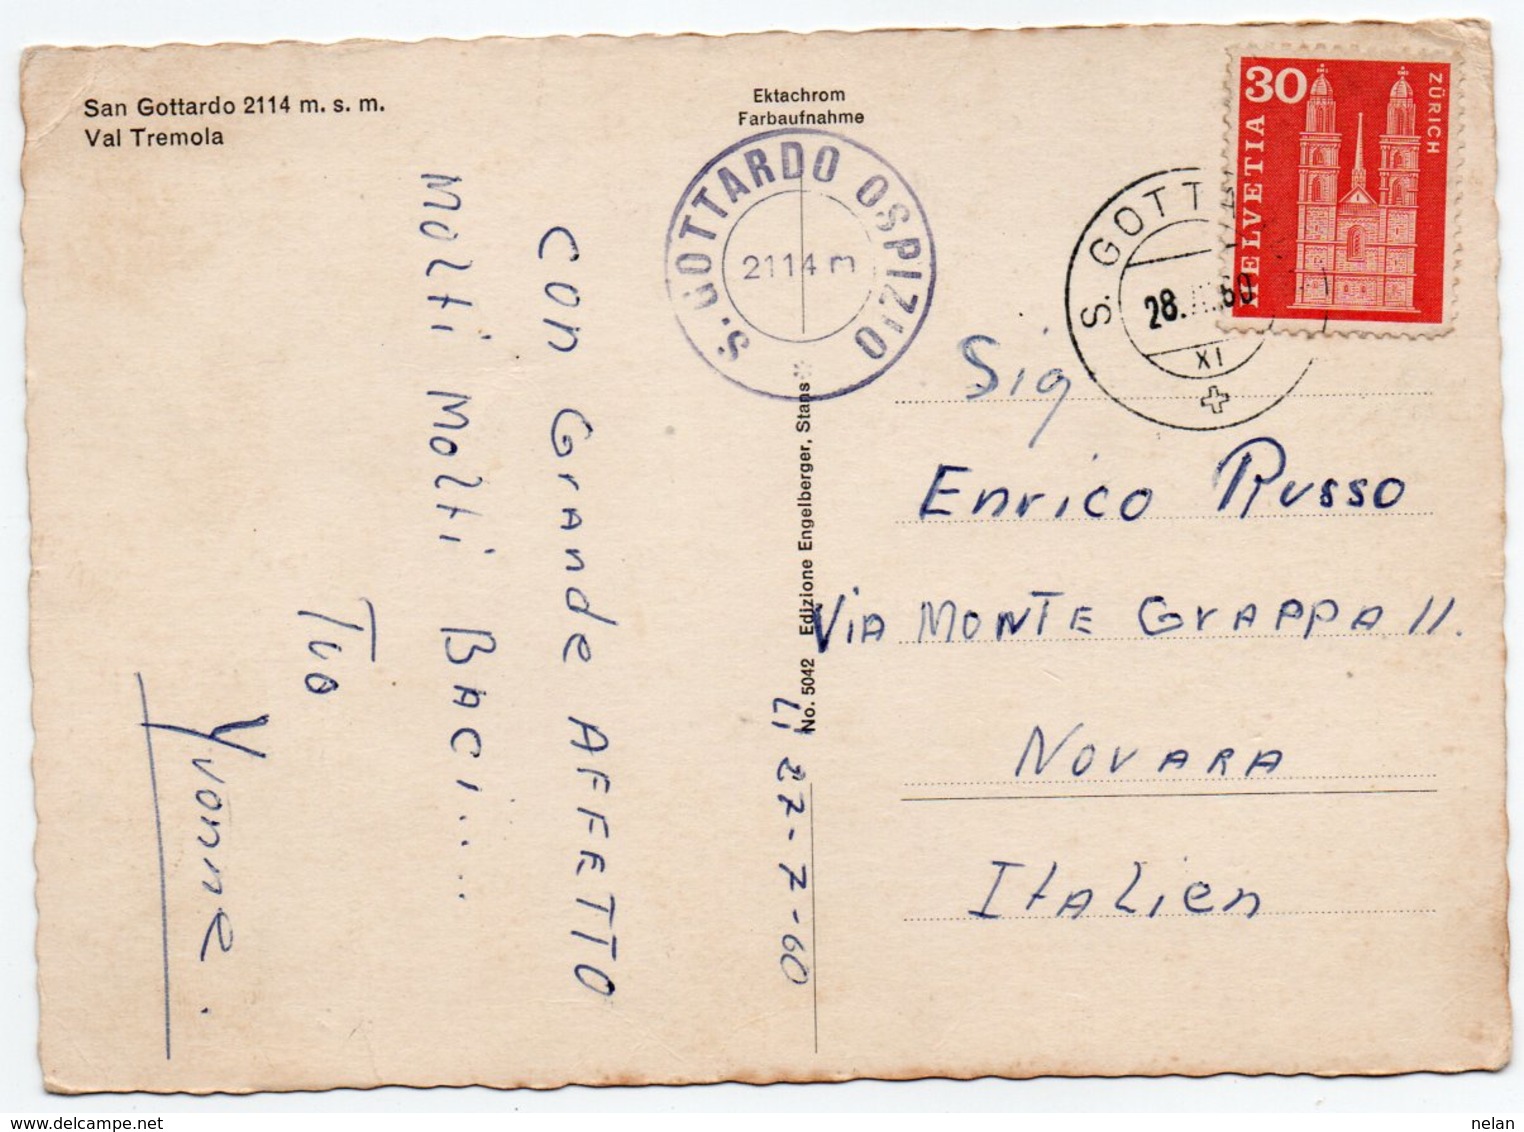 San Gottardo 2114 m. s. m.
Val Tremola
Ektachrom
Farbaufnahme
S. GOTTARDO OSPIZIO
2114 m
S. GOTT
28. 60
XI
30
HELVETIA
ZÜRICH
Li 27-7-60
Con Grande AFFETTO
Molti Molti BACi....
Tuo
Yvonne.
No. 5042 Edizione Engelberger, Stans
Sig
Enrico Russo
Via MONTE GrAPPA 11.
NOVARA
Italien
www.delcampe.net
nelan